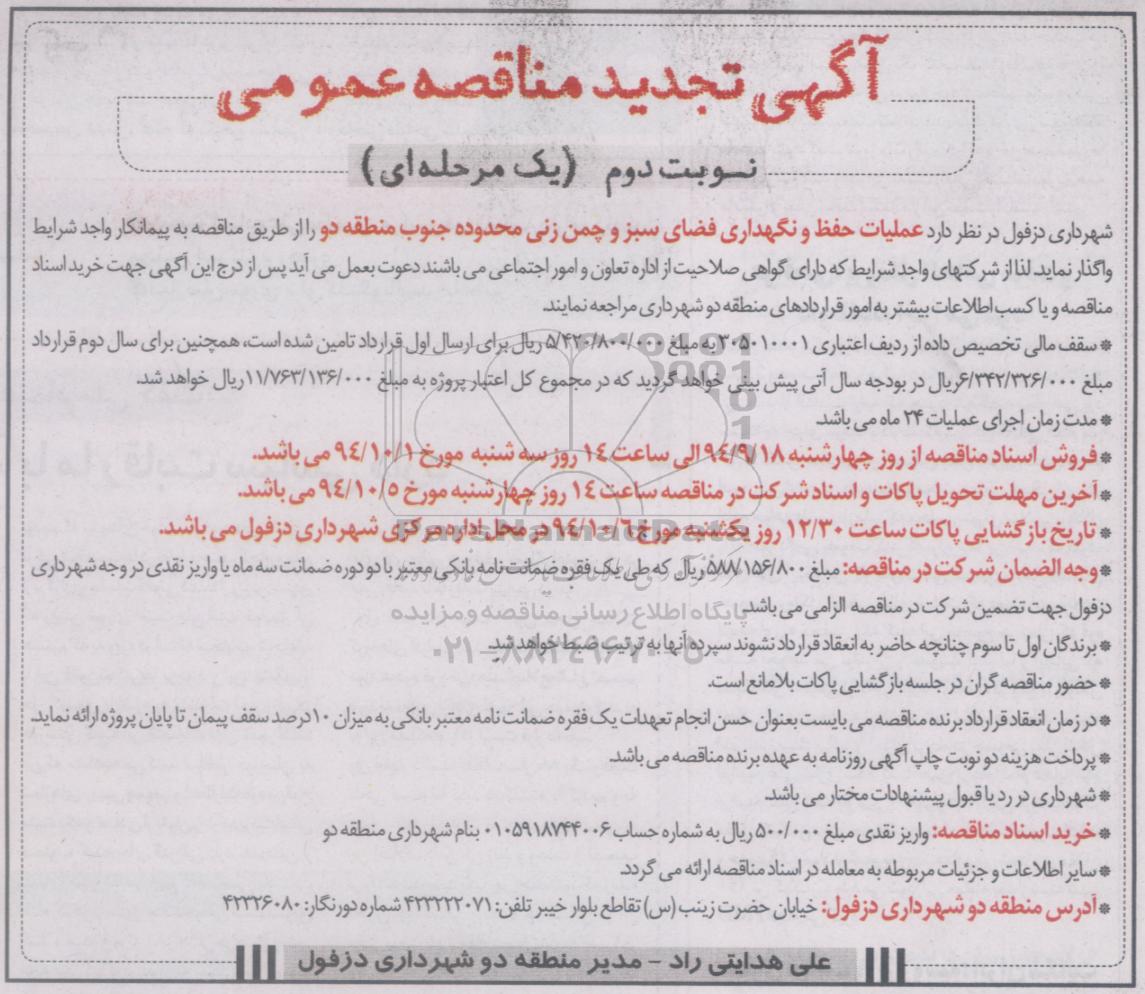 آگهی تجدید مناقصه عمومی
نوبت دوم (یک مرحله‌ای)
شهرداری دزفول در نظر دارد عملیات حفظ و نگهداری فضای سبز و چمن زنی محدوده جنوب منطقه دو را از طریق مناقصه به پیمانکار واجد شرایط
واگذار نماید. لذا از شرکتهای واجد شرایط که دارای گواهی صلاحیت از اداره تعاون و امور اجتماعی می باشند دعوت بعمل می آید پس از درج این آگهی جهت خرید اسناد
مناقصه و یا کسب اطلاعات بیشتر به امور قراردادهای منطقه دو شهرداری مراجعه نمایند.
* سقف مالی تخصیص داده از ردیف اعتباری ۳۰۵۰۱۰۰۰۱ به مبلغ ۵/۴۲۰/۸۰۰/۰۰۰ ریال برای ارسال اول قرارداد تامین شده است، همچنین برای سال دوم قرارداد
مبلغ ۶/۳۴۲/۳۲۶/۰۰۰ ریال در بودجه سال آتی پیش بینی خواهد گردید که در مجموع کل اعتبار پروژه به مبلغ ۱۱/۷۶۳/۱۳۶/۰۰۰ ریال خواهد شد.
* مدت زمان اجرای عملیات ۲۴ ماه می باشد.
* فروش اسناد مناقصه از روز چهارشنبه ۹۴/۹/۱۸ الی ساعت ۱۴ روز سه شنبه مورخ ۹۴/۱۰/۱ می باشد.
* آخرین مهلت تحویل پاکات و اسناد شرکت در مناقصه ساعت ۱۴ روز چهارشنبه مورخ ۹۴/۱۰/۵ می باشد.
* تاریخ بازگشایی پاکات ساعت ۱۲/۳۰ روز یکشنبه مورخ ۹۴/۱۰/۶ در محل اداره مرکزی شهرداری دزفول می باشد.
* وجه الضمان شرکت در مناقصه: مبلغ ۵۸۸/۱۵۶/۸۰۰ ریال که طی یک فقره ضمانت نامه بانکی معتبر با دو دوره ضمانت سه ماه یا واریز نقدی در وجه شهرداری
دزفول جهت تضمین شرکت در مناقصه الزامی می باشد.
* برندگان اول تا سوم چنانچه حاضر به انعقاد قرارداد نشوند سپرده آنها به ترتیب ضبط خواهد شد.
* حضور مناقصه گران در جلسه بازگشایی پاکات بلامانع است.
* در زمان انعقاد قرارداد برنده مناقصه می بایست بعنوان حسن انجام تعهدات یک فقره ضمانت نامه معتبر بانکی به میزان ۱۰ درصد سقف پیمان تا پایان پروژه ارائه نماید.
* پرداخت هزینه دو نوبت چاپ آگهی روزنامه به عهده برنده مناقصه می باشد.
* شهرداری در رد یا قبول پیشنهادات مختار می باشد.
* خرید اسناد مناقصه: واریز نقدی مبلغ ۵۰۰/۰۰۰ ریال به شماره حساب ۰۱۰۵۹۱۸۷۴۴۰۰۶ بنام شهرداری منطقه دو
* سایر اطلاعات و جزئیات مربوطه به معامله در اسناد مناقصه ارائه می گردد.
* آدرس منطقه دو شهرداری دزفول: خیابان حضرت زینب (س) تقاطع بلوار خیبر تلفن: ۴۲۳۲۲۲۰۷۱ شماره دورنگار: ۴۲۳۲۶۰۸۰
علی هدایتی راد - مدیر منطقه دو شهرداری دزفول
ParsNamadData
پایگاه اطلاع رسانی مناقصه و مزایده
۰۲۱-۸۸۳۴۹۶۷۰-۵